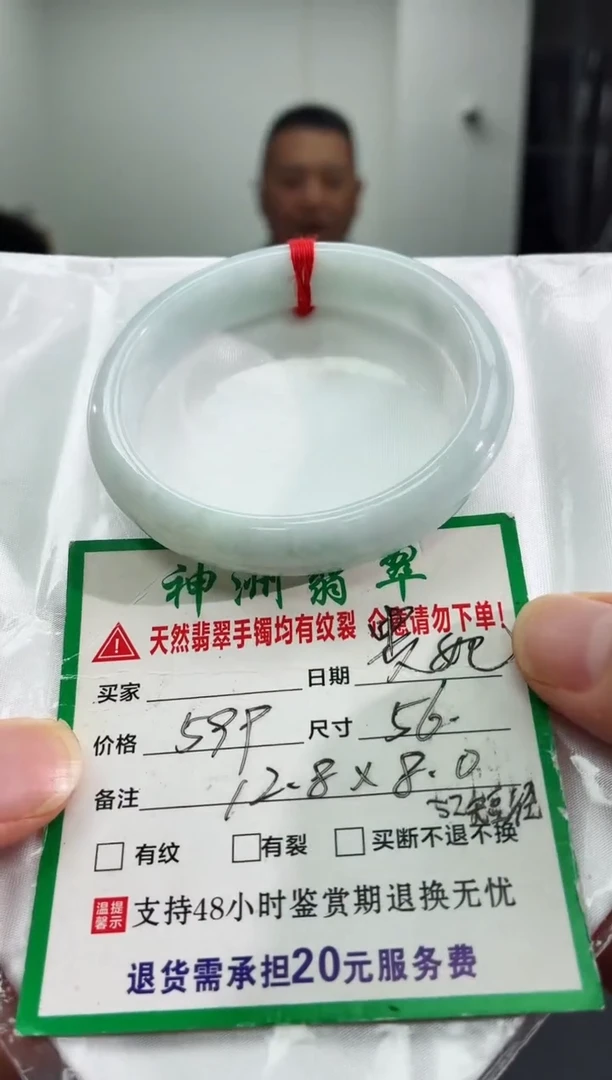 神洲翡翠
天然翡翠手镯均有纹裂 介意请勿下单！
买家 日期 贵妃
价格 59 尺寸 56.
备注 12.8×8.0
52短径
有纹 有裂 买断不退不换
温馨提示 支持48小时鉴赏期退换无忧
退货需承担20元服务费